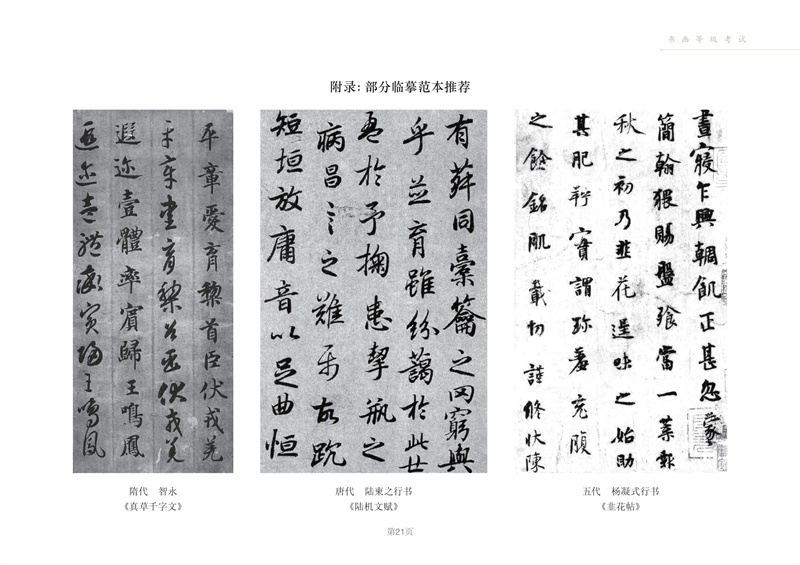 书画等级考试
附录：部分临摹范本推荐
平章愛育黎首臣伏戎羌
平章愛育黎首臣伏戎羌
遐迩壹體率賓歸王鳴鳳
遐迩壹體率賓歸王鳴鳳
有薛同橐籥之罔窮與
乎並育雖紛藹於此世
嗟於予掬患挈瓶之
病昌言之難屬故踸
短垣放庸音以足曲恒
晝寢乍興輖飢正甚忽蒙
簡翰猥賜盤飧當一葉報
秋之初乃韭花逞味之始助
其肥羜實謂珍羞充腹
之餘銘肌載切謹修狀陳
隋代 智永
《真草千字文》
唐代 陆柬之行书
《陆机文赋》
五代 杨凝式行书
《韭花帖》
第21页